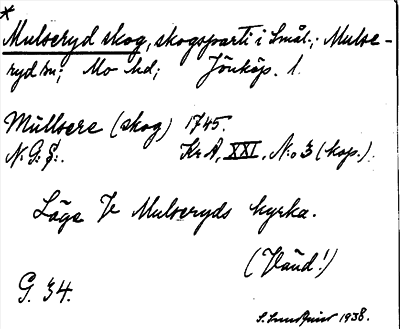 *
Mulseryd skog, skogsparti i Smål.; Mulse-
ryd sn; Mo hd; Jönköp. l.
Müllsere (skog) 1745.
N: G: S:. KrA, XXI, N:o 3 (kop.).
Läge V Mulseryds kyrka.
(Vänd!)
G. 34.
S. Lundquist 1938.